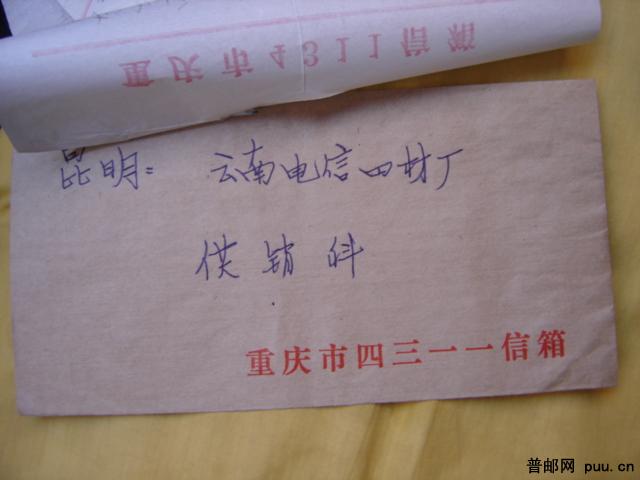 重庆市4311信箱
昆明： 云南电信四材厂
供销科
重庆市四三一一信箱
普邮网 puu.cn